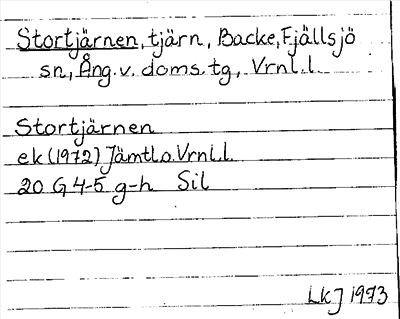 Stortjärnen, tjärn, Backe, Fjällsjö
sn, Ång. v. doms. tg, Vrnl. l.
Stortjärnen
ek (1972) Jämtl. o. Vrnl. l.
20 G 4-5 g-h Sil
LkJ 1973